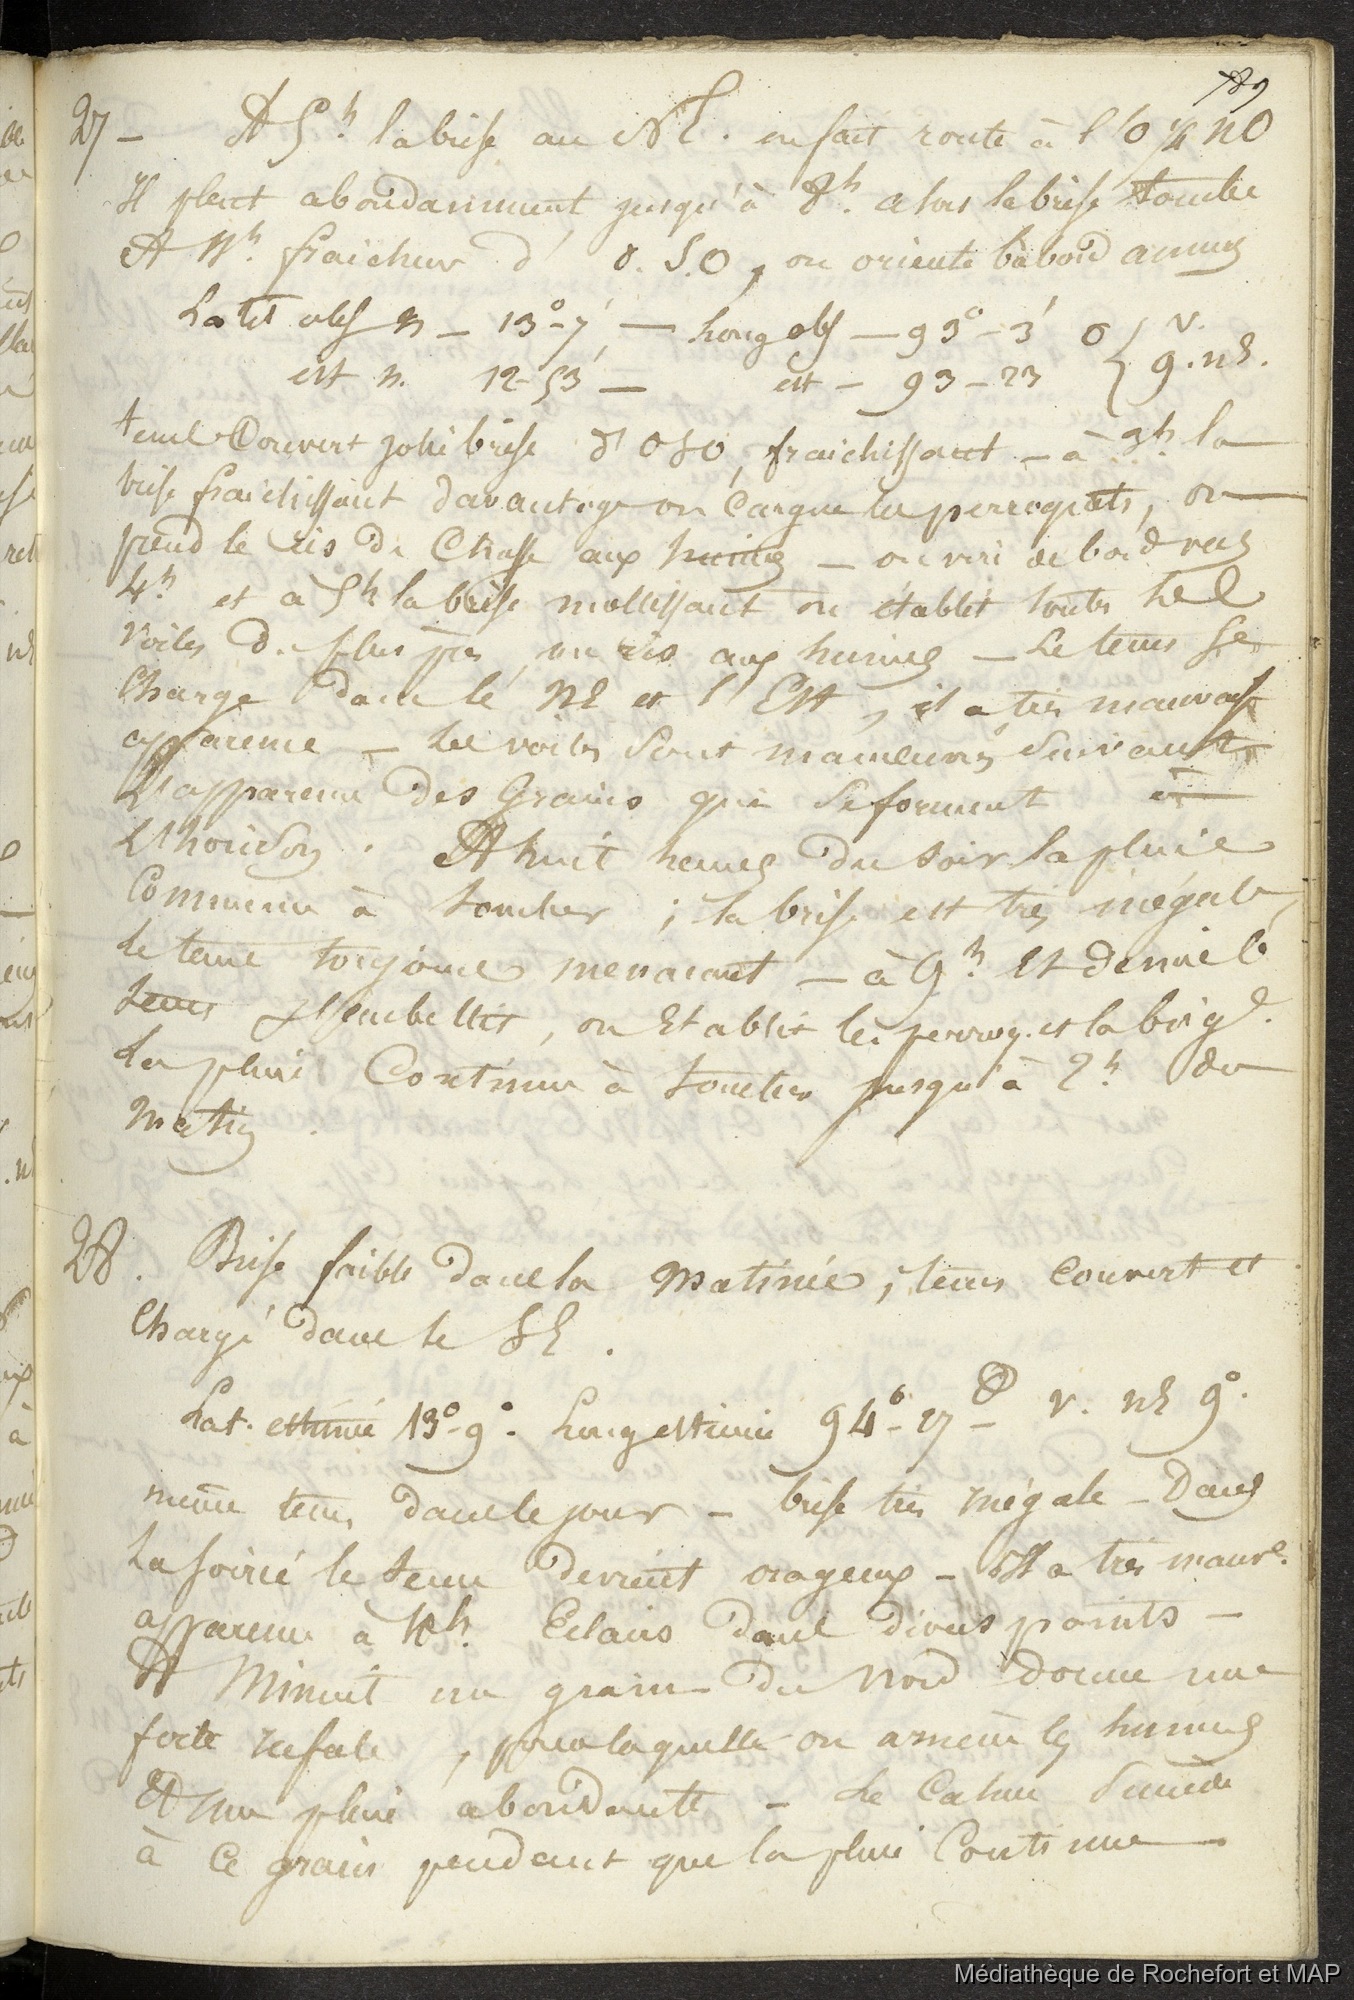 27 - A 5h la brise au NE. on fait route à l'O 1/4 NO
Il pleut abondamment jusqu'à 8h. alors la brise tombe
A 11h. fraicheur d' O.S.O, on oriente babord amures
Latit obs N - 13°-7', - Long obs - 93°-3' O { V.
est N. 12-53' - est - 93-23 { 9. NE.
tems Couvert jolie brise d'OSO, fraichissant - à 3h. la
brise fraichissant davantage on Cargue les perroquets, on
prend le ris de Chasse aux huniers - on vire de bord vers
4h et à 5h la brise mollissant on établit toutes les
voiles d. plus près, un ris aux huniers - Le tems se
Charge dans le NE et l'Est, il a très mauvaise
apparence - Les voiles sont manœuvrés suivant
l'apparence des Grains qui se forment à
L'horison. A huit heures du soir la pluie
Commence à tomber ; la brise est très inégale,
le tems toujours menacant - à 9h. Et demie le
tems s'embellit, on Etablit les perroq. et la brigd.
La pluie Continue à tomber jusqu'à 2h. du
Matin.
28. Brise faible dans la Matinée ; tems Couvert et
Chargé dans le SE.
Lat. estimée 13°-9°. Long estimée 94°-27- O V. NE 9°.
même tems dans le jour - brise très inégale - Dans
La soirée le tems devient orageux - Il a très mauve.
apparence à 10h. Eclairs dans divers points -
A Minuit un grain du Nord donne une
forte rafale, pour laquelle on amène les huniers
Et une pluie abondante - Le Calme succède
à Ce grain pendant que la pluie Continue -
Médiathèque de Rochefort et MAP